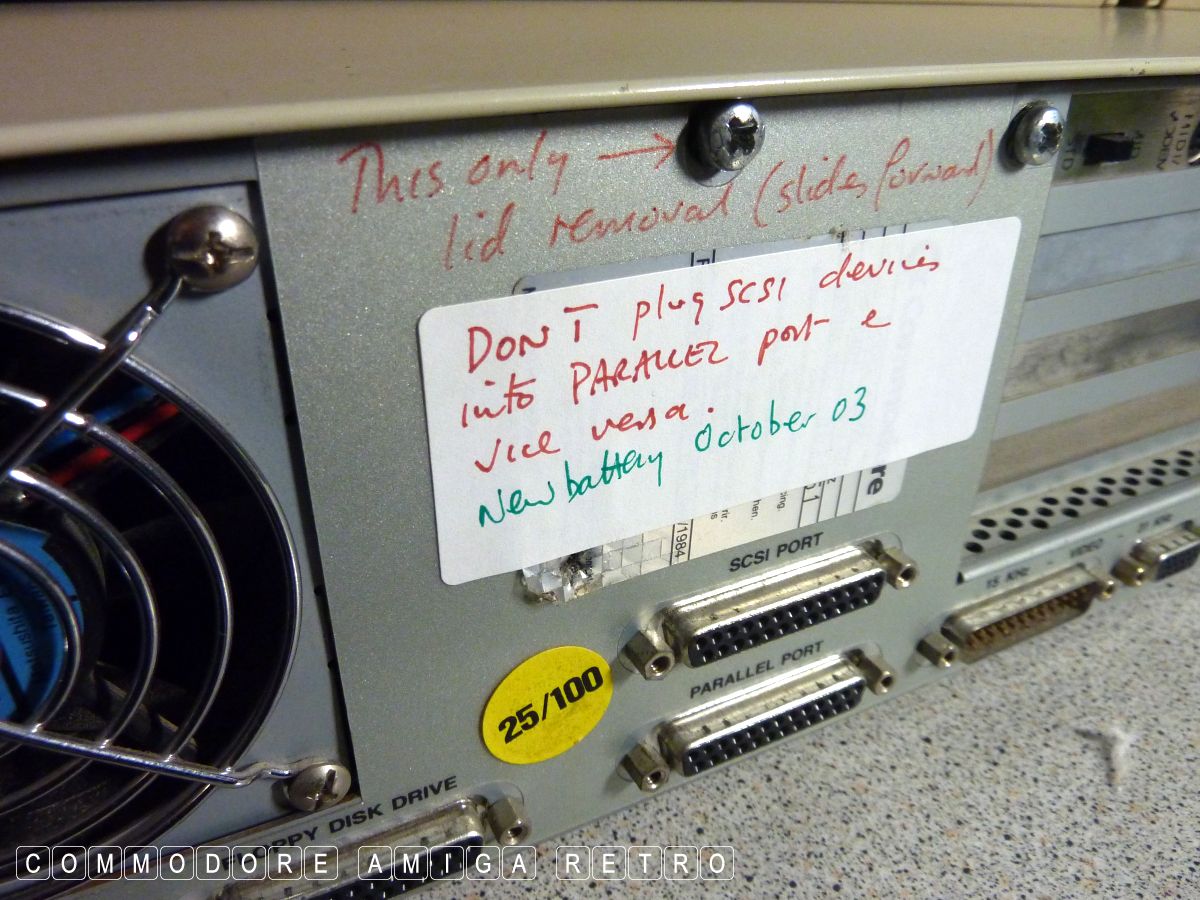 This only →
lid removal (slides forward)
DON'T plug SCSI devices
into PARALLEL port e
vice versa.
New battery October 03
/1984
SCSI PORT
PARALLEL PORT
25/100
15 KHz - VIDEO
31 KHz
OPPY DISK DRIVE
COMMODORE AMIGA RETRO